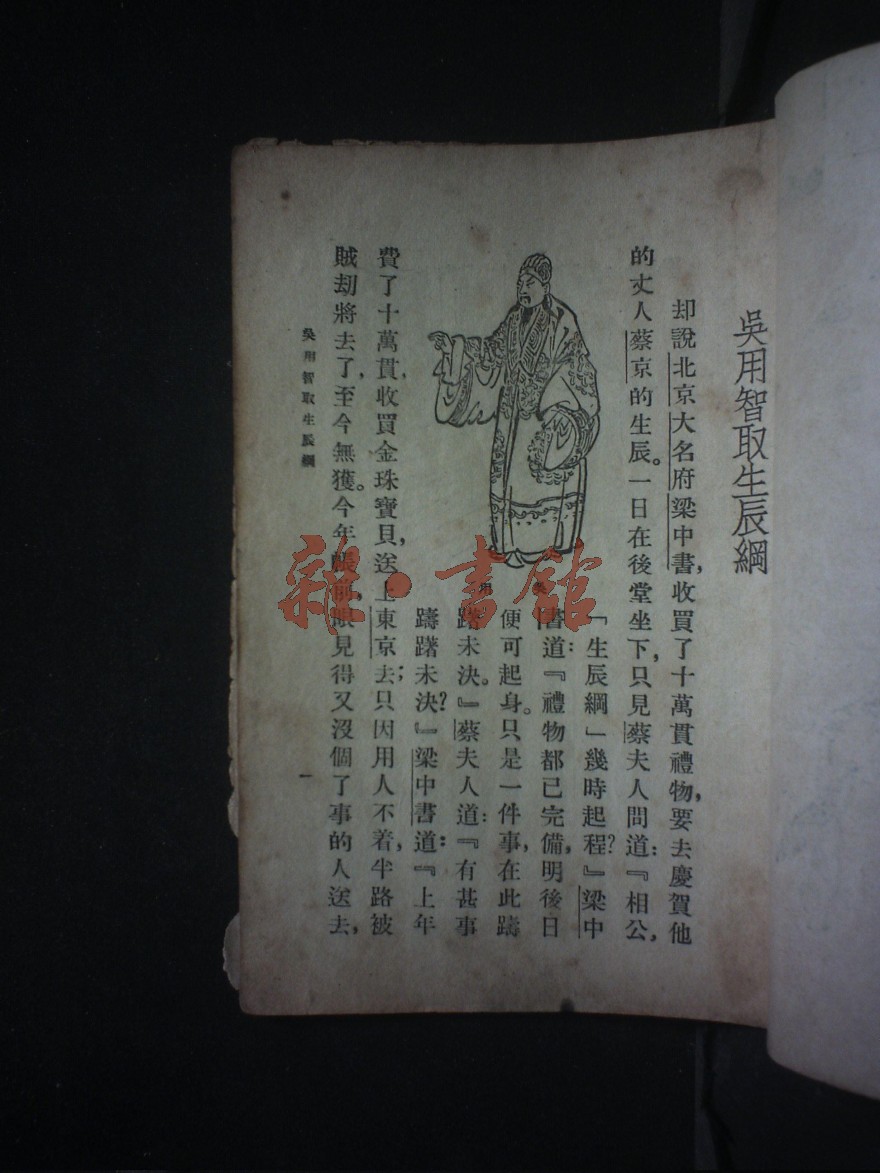 吳用智取生辰綱
却說北京大名府梁中書，收買了十萬貫禮物，要去慶賀他
的丈人蔡京的生辰。一日在後堂坐下，只見蔡夫人問道：『相公，
「生辰綱」幾時起程？』梁中
書道：『禮物都已完備，明後日
便可起身。只是一件事，在此躊
躇未決。』蔡夫人道：『有甚事
躊躇未決？』梁中書道：『上年
費了十萬貫，收買金珠寶貝，送上東京去；只因用人不着，半路被
賊劫將去了，至今無獲。今年帳前，眼見得又沒個了事的人送去，
吳用
吳用智取生辰綱
一
雜·書館